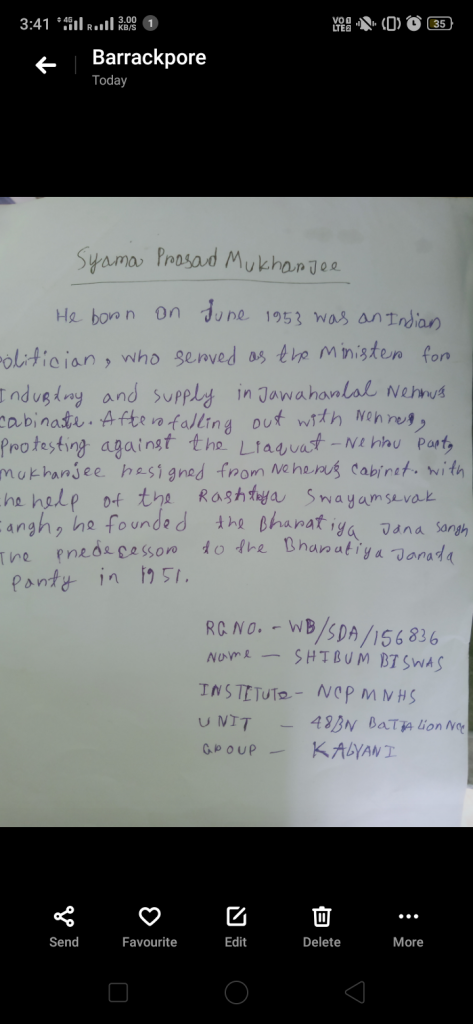 3:41 4G R 3.00 KB/S 1 VoLTE 35
Barrackpore
Today
Syama Prasad Mukharjee
He born on June 1953 was an Indian
olitician, who served as the Minister for
Industry and supply in Jawaharlal Nehrus
cabinate. After falling out with Nehrus,
Protesting against the Liaquat-Nehru Pact,
Mukharjee hesigned from Neherus cabinet. with
he help of the Rashtya Swayamsevak
angh, he founded the Bharatiya Jana Sangh
The predecessor to the Bharatiya Janada
Party in 1951.
RG NO. - WB/SDA/156836
Name - SHIBUM BISWAS
INSTITUTE - NCPMNHS
UNIT - 48BN BaTTALion
GROUP - KALYANI
Send Favourite Edit Delete More